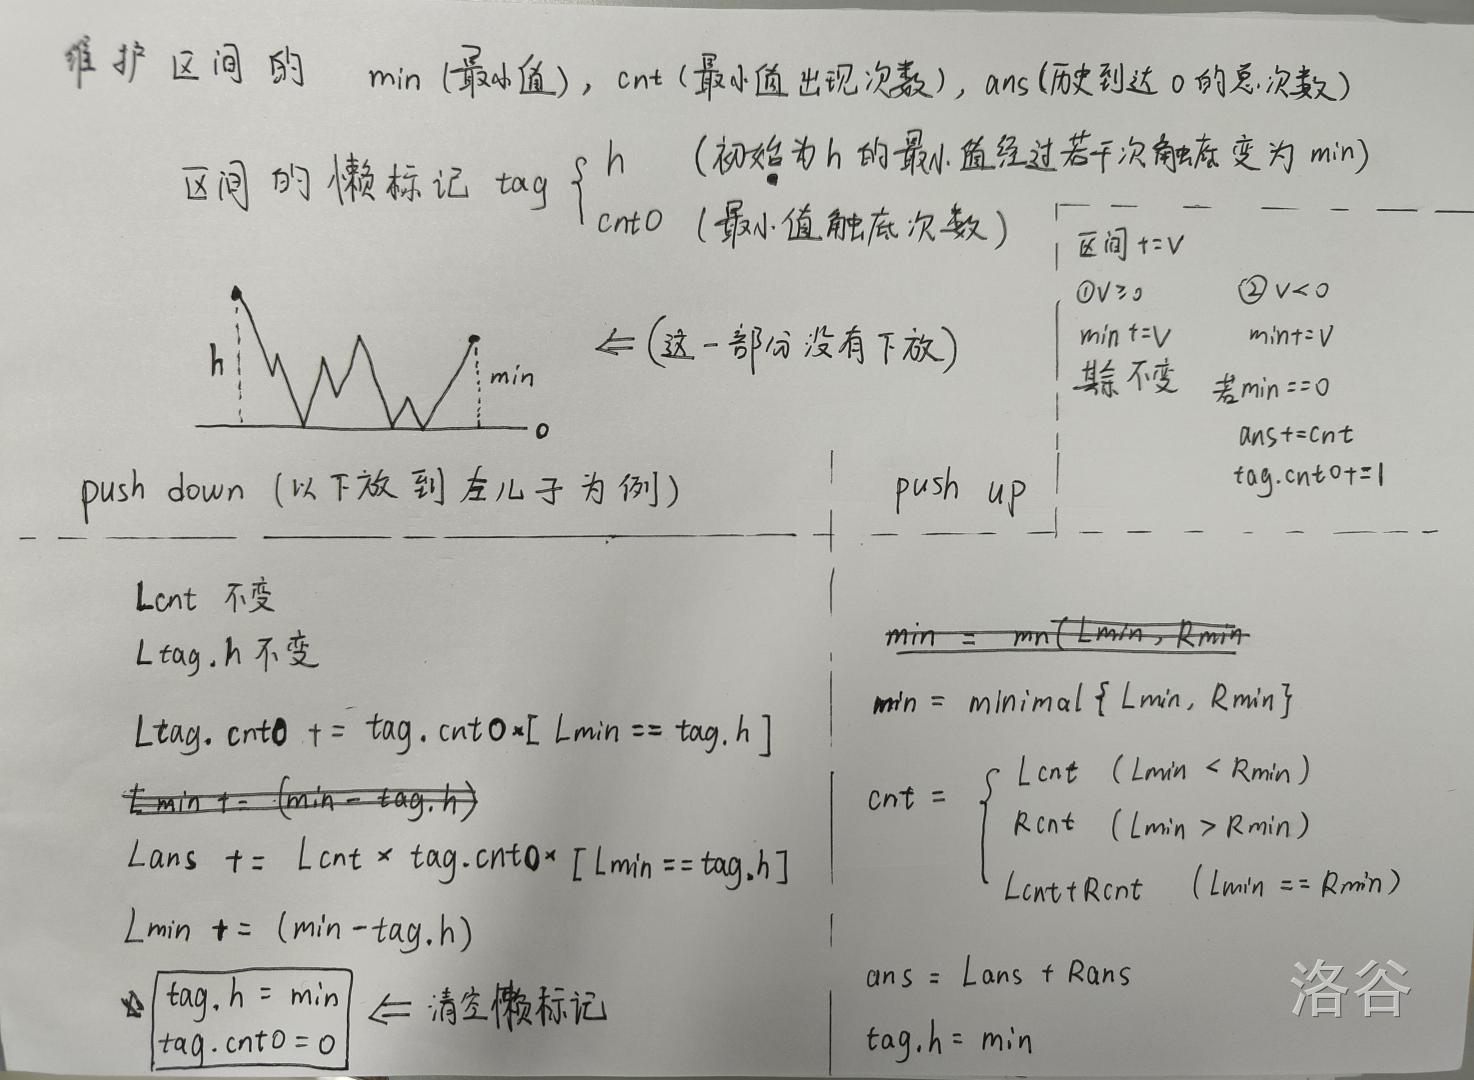 维护区间的 min (最小值), cnt (最小值出现次数), ans (历史到达0的总次数)
区间的懒标记 tag { h (初始为h的最小值经过若干次触底变为 min)
cnt0 (最小值触底次数)
区间 += v
①v≥0 ②v<0
min += v min += v
其余不变 若 min == 0
ans += cnt
tag.cnt0 += 1
h min 0
⇐ (这一部分没有下放)
push down (以下放到左儿子为例)
Lcnt 不变
Ltag.h 不变
Ltag.cnt0 += tag.cnt0 * [Lmin == tag.h]
Lmin += (min - tag.h)
Lans += Lcnt × tag.cnt0 * [Lmin == tag.h]
Lmin += (min - tag.h)
tag.h = min
tag.cnt0 = 0
⇐ 清空懒标记
push up
min = mn(Lmin, Rmin
min = minimal{Lmin, Rmin}
cnt = { Lcnt (Lmin < Rmin)
Rcnt (Lmin > Rmin)
Lcnt+Rcnt (Lmin == Rmin)
ans = Lans + Rans
tag.h = min
洛谷